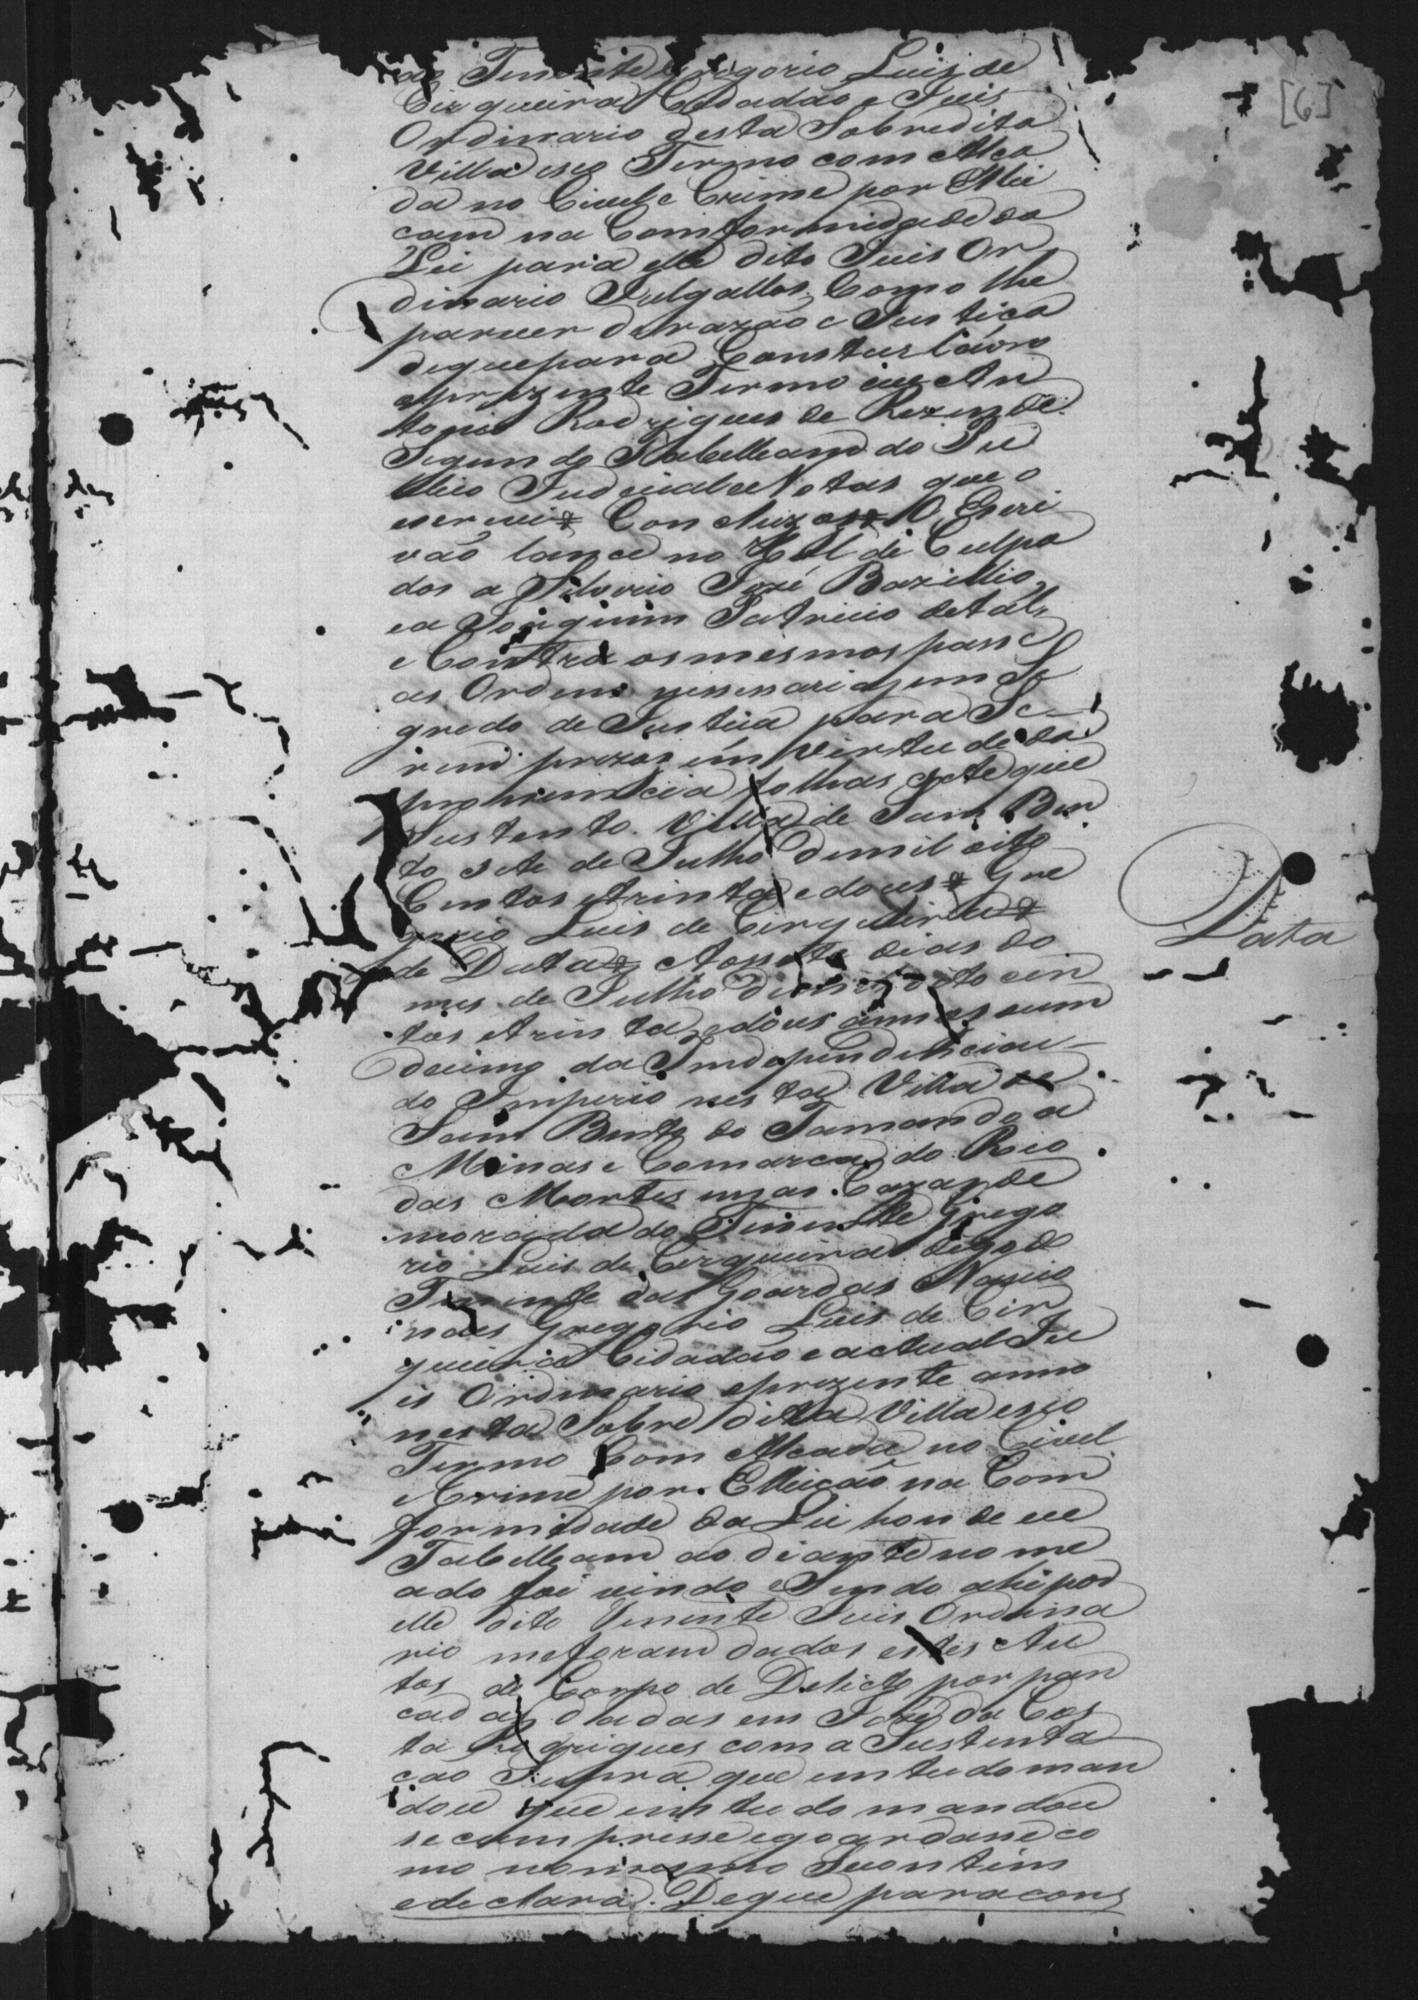 [6]
ao Tenente Gregorio Luis de
Cirqueira Cidadão e Juis
Ordinario desta Sobredita
Villa eseo Termo com Alca
da no Civel e Crime por Ellei
cam na Comformidade da
Lei para elle dito Juis Or
dinario Julgallos Como lhe
parecer derazão e Justica
dequepara Constar lavro
oprezente Termo eu An
tonio Rodrigues de Rezende
Segundo Tabelleam do Pu
blico Judicial e Notas que o
escrevi Concluzos O Escri
vão lance no Rol de Culpa
dos a Silverio José Bazillio,
ea Joaquim Patricio detal,
e Contra os mesmos passe
as Ordens nessesarias em Se
gredo de Justica para Se
rem prezos em Virtude da
pronuncia folhas sete que
Sustento. Villa de Sam Ben
to sete de Julho demil oito
Centos etrinta e dous Gre
gorio Luis de Cirqueira
de Data Aos sete dias do
mes de Julho de mil oito cen
tos etrinta edous annos um
decimo da Independencia e
do Imperio nesta Villa de
Sam Bento do Tamandoa
Minas e Comarca do Rio
das Mortes em as Cazas de
morada do Tenente Grego
rio Luis de Cerqueira digo do
Tenente das Goardas Nacio
naes Gregorio Luis de Cir
queira Cidadão e actual Ju
is Ordinario oprezente anno
nesta Sobre dita Villa eseo
Termo Com Alcada no Civel
e Crime por Elleicão na Com
formidade da Lei honde eu
Tabelleam ao diante nome
ado foi vindo e Sendo ahi por
elle dito Tenente Juis Ordina
rio meforam dados estes Au
tos de Corpo de Delicto por pan
cadas dadas em José da Cos
ta Rodrigues com a Sustenta
cão Supra que emtudo man
dou que emtudo mandou
secumprisse egoardasse co
mo
edeclara. Deque para cons
Data